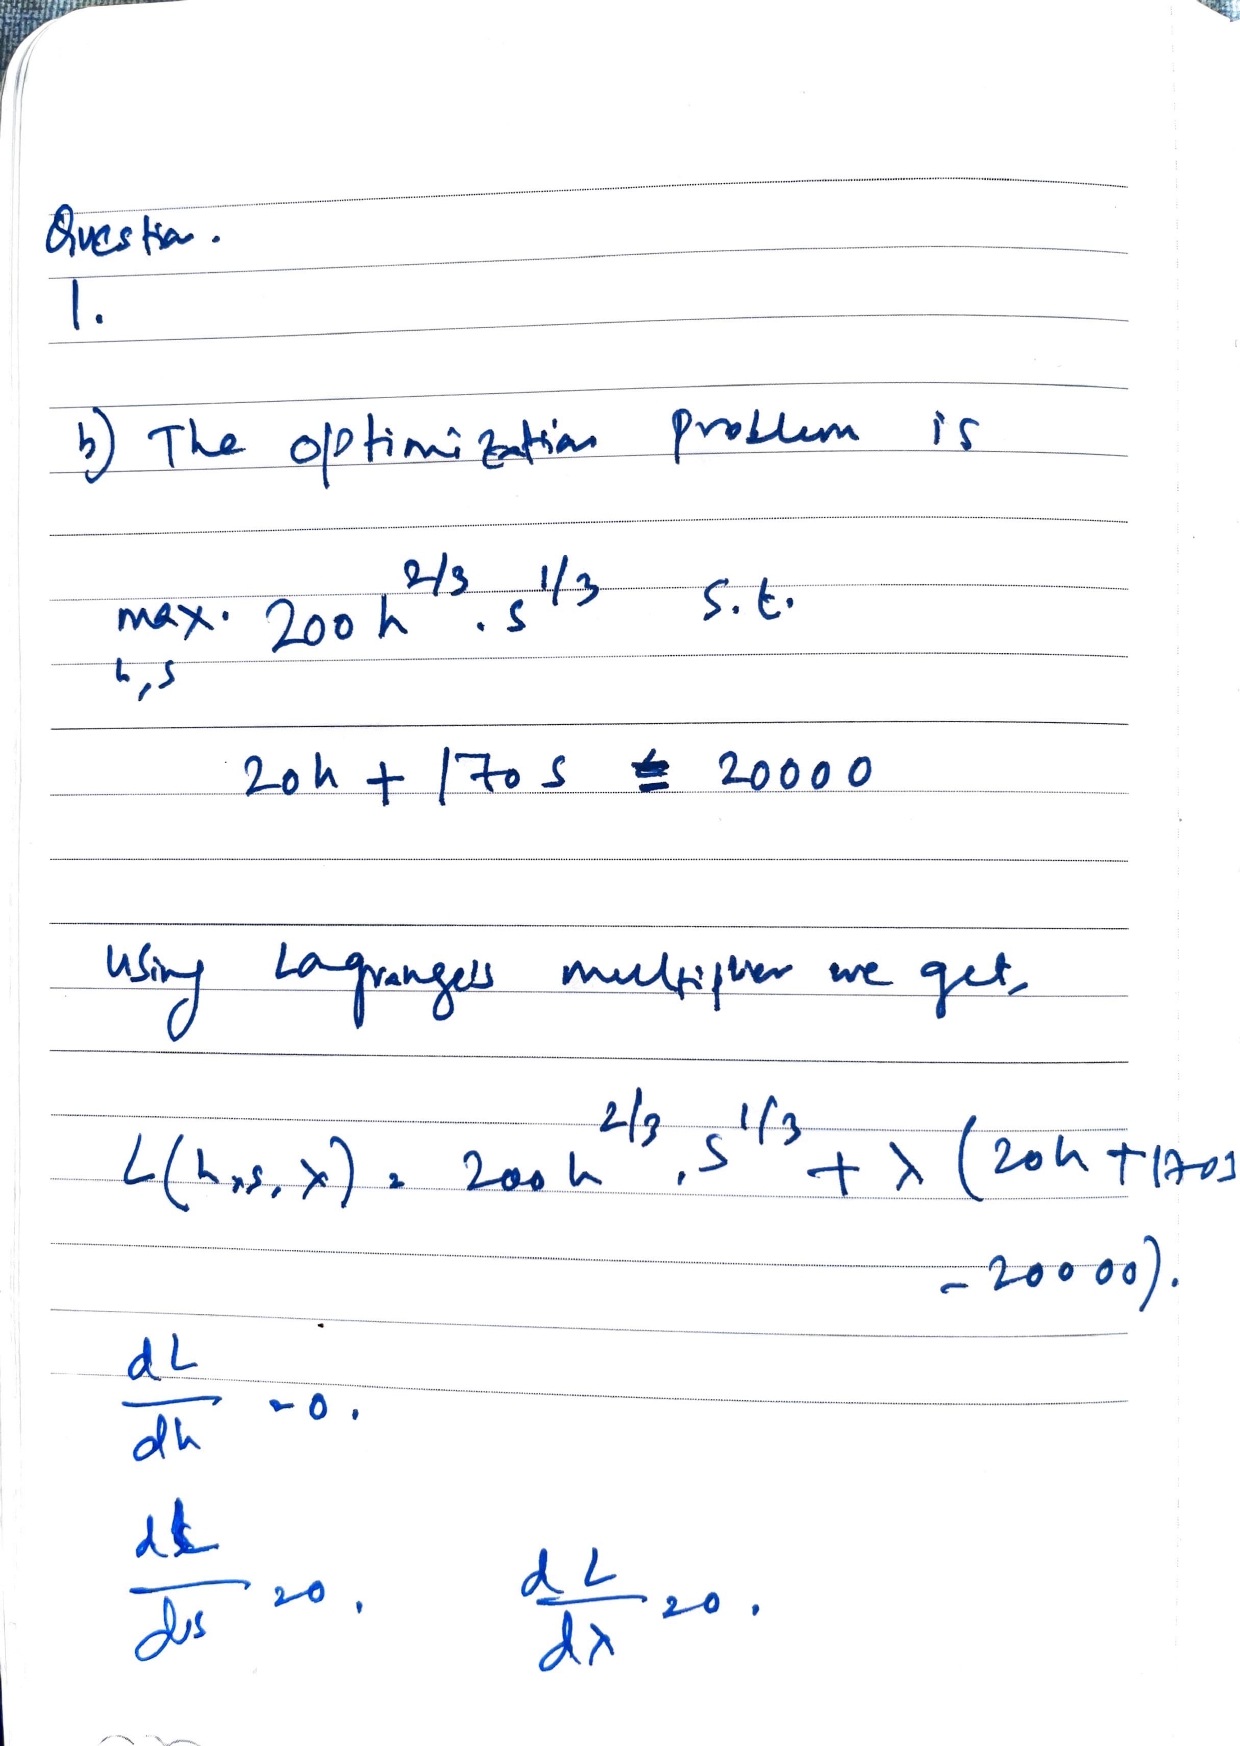 Question.
1.
b) The optimization problem is
max. 200 h^2/3 . s^1/3 s.t.
h,s
20h + 170s ≤ 20000
Using Lagrange's multiplier we get,
L(h,s,λ) = 200h^2/3 . s^1/3 + λ (20h + 170s
- 20000).
dL/dh = 0.
dL/ds = 0. dL/dλ = 0.